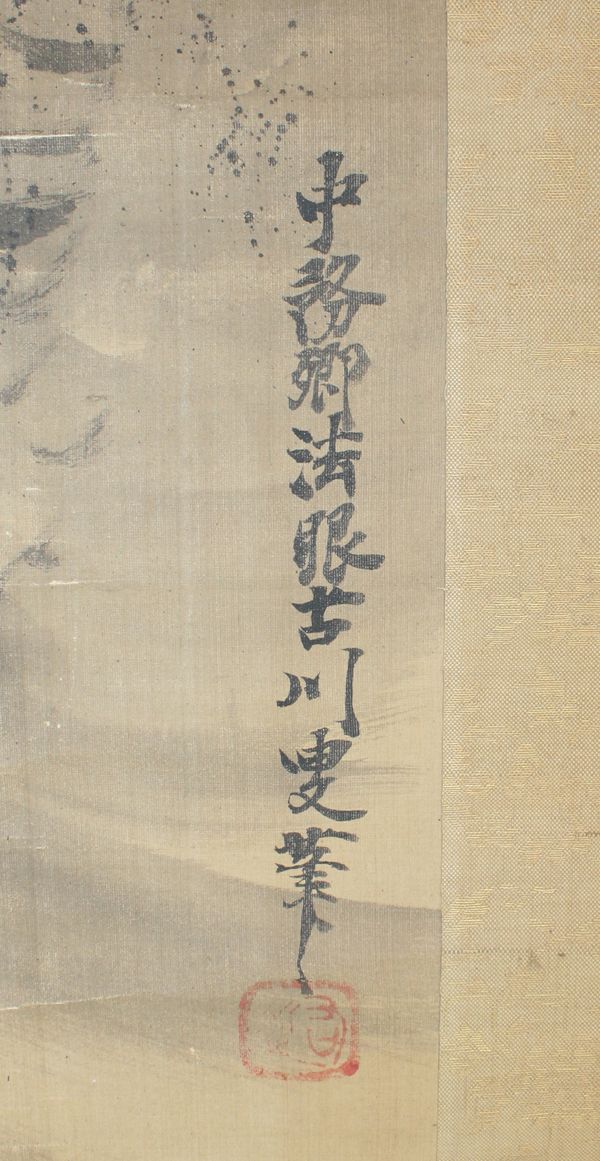 中務卿法眼古川叟筆